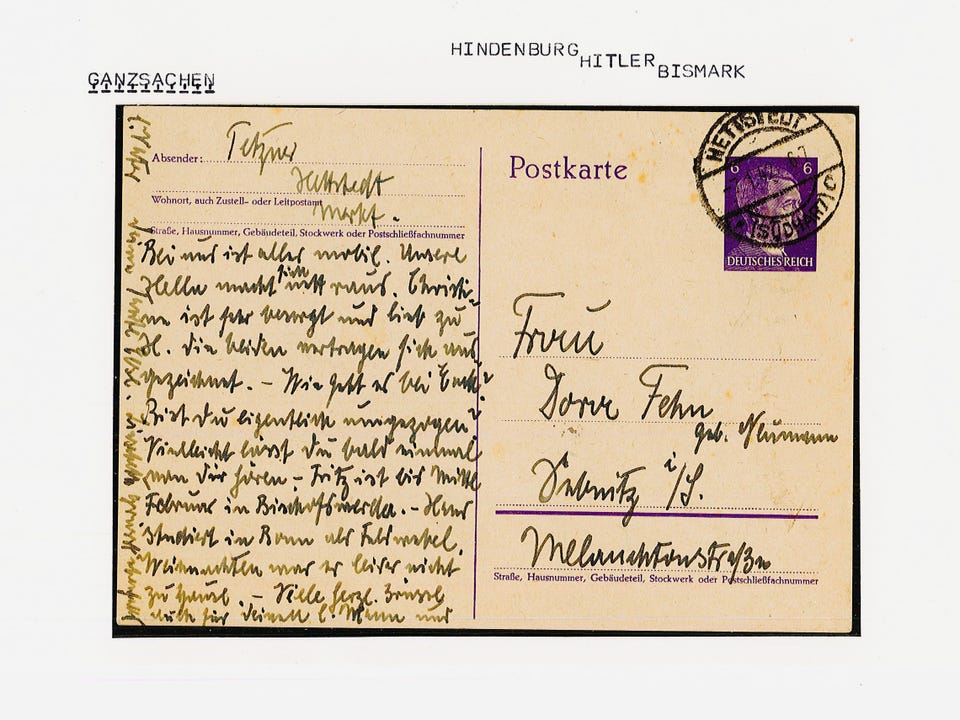 HINDENBURG HITLER BISMARK
GANZSACHEN
Absender: Tetzner
Hettstedt
Wohnort, auch Zustell- oder Leitpostamt
Markt.
Straße, Hausnummer, Gebäudeteil, Stockwerk oder Postschließfachnummer
Bei uns ist alles mobil. Unsere
Hella macht sich nett raus. Christi-
ne ist sehr besorgt und lieb zu
H. Die beiden vertragen sich aus-
gezeichnet. – Wie geht es bei Euch?
Bist Du eigentlich umgezogen?
Vielleicht lässt Du bald einmal
von Dir hören – Fritz ist bis Mitte
Februar in Bischofswerda. – Hans
studiert in Bonn als Feldwebel.
Weihnachten war er leider nicht
zu Haus. – Viele herzl. Grüsse
auch für Deinen l. Mann und
Postkarte
HETTSTEDT
(SÜDHARZ) C
6 6
DEUTSCHES REICH
Frau
Dora Fehn
geb. Neumann
Sebnitz i/S.
Melanchtonstraße
Straße, Hausnummer, Gebäudeteil, Stockwerk oder Postschließfachnummer